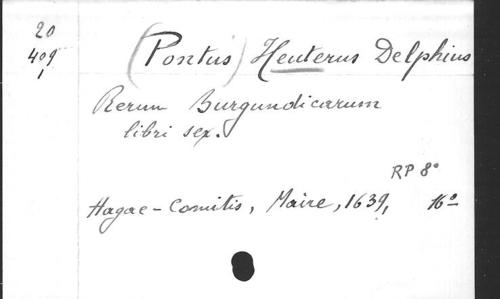 20
409
1
(Pontus) Heuterus Delphius
Rerum Burgundicarum
libri sex.
RP 8°
Hagae-Comitis, Maire, 1639, 16°